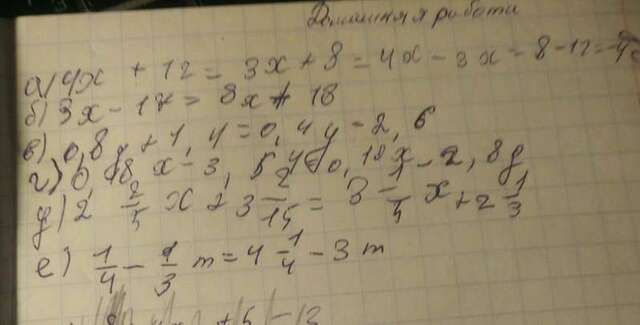 Домашняя работа
а) 4x + 12 = 3x + 8 = 4x - 3x = 8 - 12 = -4
б) 3x - 17 = 8x + 18
в) 0,8y + 1,4 = 0,4y - 2,6
г) 0,18x - 3,5y = 0,18x - 2,8y
д) 2 2/5 x + 3 2/15 = 3 1/5 x + 2 1/3
е) 1/4 - 1/3 m = 4 1/4 - 3m